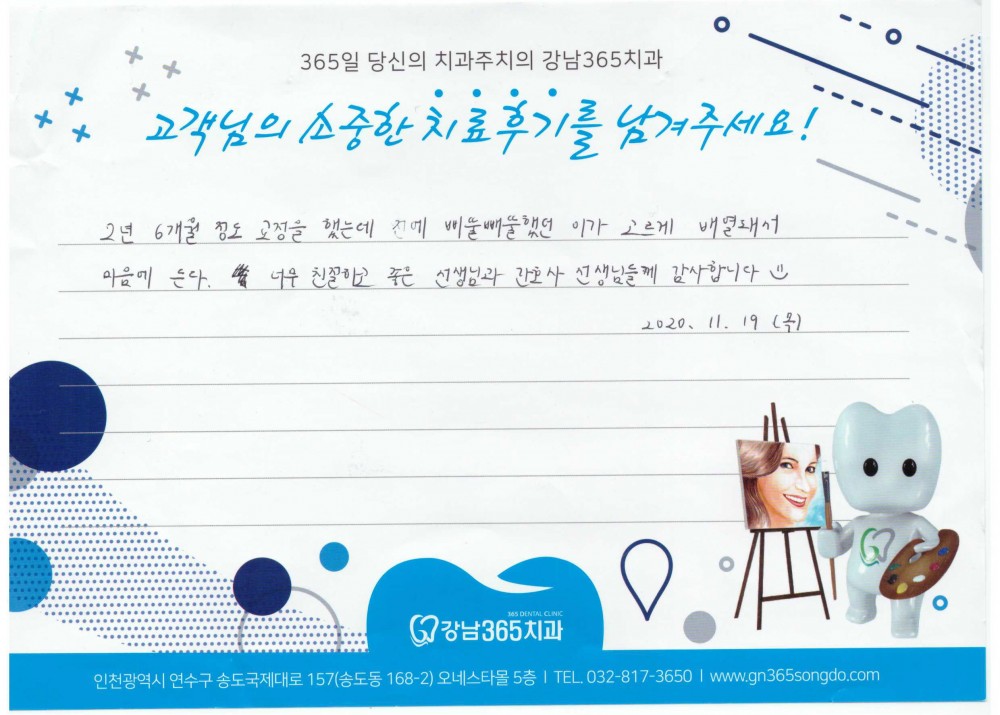 365일 당신의 치과주치의 강남365치과
고객님의 소중한 치료후기를 남겨주세요!
2년 6개월 정도 교정을 했는데 전에 삐뚤빼뚤했던 이가 고르게 배열돼서
마음에 든다. 너무 친절하고 좋은 선생님과 간호사 선생님들께 감사합니다
2020. 11. 19 (목)
365 DENTAL CLINIC
강남365치과
인천광역시 연수구 송도국제대로 157(송도동 168-2) 오네스타몰 5층 | TEL. 032-817-3650 | www.gn365songdo.com